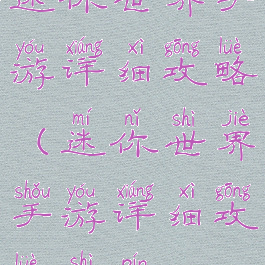 迷你世界手
yóu xiáng xì gōng lüè
游详细攻略
mí nǐ shì jiè
(迷你世界
shǒu yóu xiáng xì gōng
手游详细攻
lüè shì pín